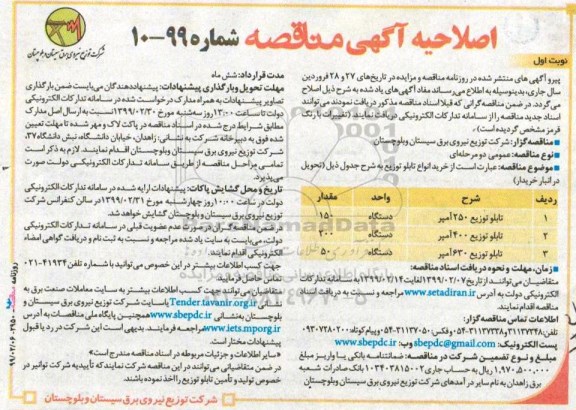 اصلاحیه آگهی مناقصه شماره ۹۹-۱۰
شرکت توزیع نیروی برق سیستان و بلوچستان
نوبت اول
پیرو آگهی های منتشر شده در روزنامه مناقصه و مزایده در تاریخ‌های ۲۷ و ۲۸ فروردین
سال جاری، بدینوسیله به اطلاع می‌رساند مفاد آگهی‌های یاد شده به شرح ذیل اصلاح
می‌گردد. در ضمن مناقصه‌گرانی که قبلا اسناد مناقصه مذکور دریافت نمودند می‌توانند
اسناد جدید مناقصه را از سامانه تدارکات الکترونیکی دریافت نمایند. (تغییرات با رنگ
قرمز مشخص گردیده است).
مناقصه گزار: شرکت توزیع نیروی برق سیستان و بلوچستان
نوع مناقصه: عمومی دو مرحله‌ای
موضوع مناقصه: عبارت است از خرید انواع تابلو توزیع به شرح جدول ذیل (تحویل
در انبار خریدار)
ردیف شرح واحد مقدار
۱ تابلو توزیع ۲۵۰ آمپر دستگاه ۱۵۰
۲ تابلو توزیع ۴۰۰ آمپر دستگاه
۳ تابلو توزیع ۶۳۰ آمپر دستگاه ۵۰
زمان، مهلت و نحوه دریافت اسناد مناقصه:
متقاضیان می‌توانند از تاریخ ۱۳۹۹/۰۲/۰۷ لغایت ۱۳۹۹/۰۲/۱۴ به سامانه تدارکات
الکترونیکی دولت به آدرس www.setadiran.ir مراجعه و نسبت به دریافت اسناد
مناقصه اقدام نمایند.
اطلاعات تماس مناقصه گزار:
تلفن: ۳۱۱۳۷۳۴۸ و ۳۱۱۳۷۳۳۸-۰۵۴ و فکس: ۳۱۱۳۷۰۵۰-۰۵۴ و پیام کوتاه: ۰۹۳۰۷۲۸۰۲۰۰
پست الکترونیک: sbepdc@gmail.com وب: www.sbepdc.ir
مبلغ و نوع تضمین شرکت در مناقصه: ضمانتنامه بانکی یا واریز مبلغ
۱,۹۷۰,۵۰۰,۰۰۰ ریال به حساب جاری ۰۱۰۳۴۰۳۸۱۵۰۰۲ بانک صادرات شعبه
برق زاهدان به نام سایر درآمدهای شرکت توزیع نیروی برق سیستان و بلوچستان
مدت قرارداد: شش ماه
مهلت تحویل و بارگذاری پیشنهادات: پیشنهاددهندگان می‌بایست ضمن بارگذاری
تصاویر پیشنهادات به همراه مدارک درخواست شده در سامانه تدارکات الکترونیکی
دولت تا ساعت ۱۳:۰۰ روز سه‌شنبه مورخ ۱۳۹۹/۰۲/۳۰ نسبت به ارسال اصل مدارک
مطابق شرایط درج شده در اسناد مناقصه در پاکت لاک و مهر شده تا مهلت تعیین
شده فوق به دبیرخانه شرکت به نشانی: زاهدان، خیابان دانشگاه، نبش دانشگاه ۳۷،
شرکت توزیع نیروی برق سیستان و بلوچستان اقدام نمایند. لازم به ذکر است
تمامی مراحل مناقصه از طریق سامانه تدارکات الکترونیکی دولت صورت
می‌پذیرد.
تاریخ و محل گشایش پاکات: پیشنهادات ارایه شده در سامانه تدارکات الکترونیکی
دولت در ساعت ۱۰:۰۰ روز چهارشنبه مورخ ۱۳۹۹/۰۲/۳۱ در سالن کنفرانس شرکت
توزیع نیروی برق سیستان و بلوچستان گشایش خواهد شد.
در ضمن مناقصه گران در صورت عدم عضویت قبلی در سامانه تدارکات الکترونیکی
دولت، می‌بایست به سایت یاد شده مراجعه و نسبت به ثبت نام و دریافت گواهی امضاء
الکترونیکی اقدام نمایند.
جهت کسب اطلاعات بیشتر در این خصوص می‌توانید با شماره تلفن ۴۱۹۳۴-۰۲۱
تماس حاصل فرمایید.
متقاضیان می‌توانند جهت کسب اطلاعات بیشتر به سایت معاملات صنعت برق به
آدرس Tender.tavanir.org.ir یا سایت شرکت توزیع نیروی برق سیستان و
بلوچستان به نشانی www.sbepdc.ir و همچنین پایگاه ملی مناقصات به آدرس
www.iets.mporg.ir مراجعه فرمایند. بدیهی است این شرکت در رد یا قبول
پیشنهادات مختار است.
«سایر اطلاعات و جزئیات مربوطه در اسناد مناقصه مندرج است»
در ضمن متقاضیانی می‌توانند در این مناقصه شرکت نمایند که تأییدیه توانیر در
خصوص تولید و تأمین تابلو توزیع را اخذ نموده باشند.
شرکت توزیع نیروی برق سیستان و بلوچستان